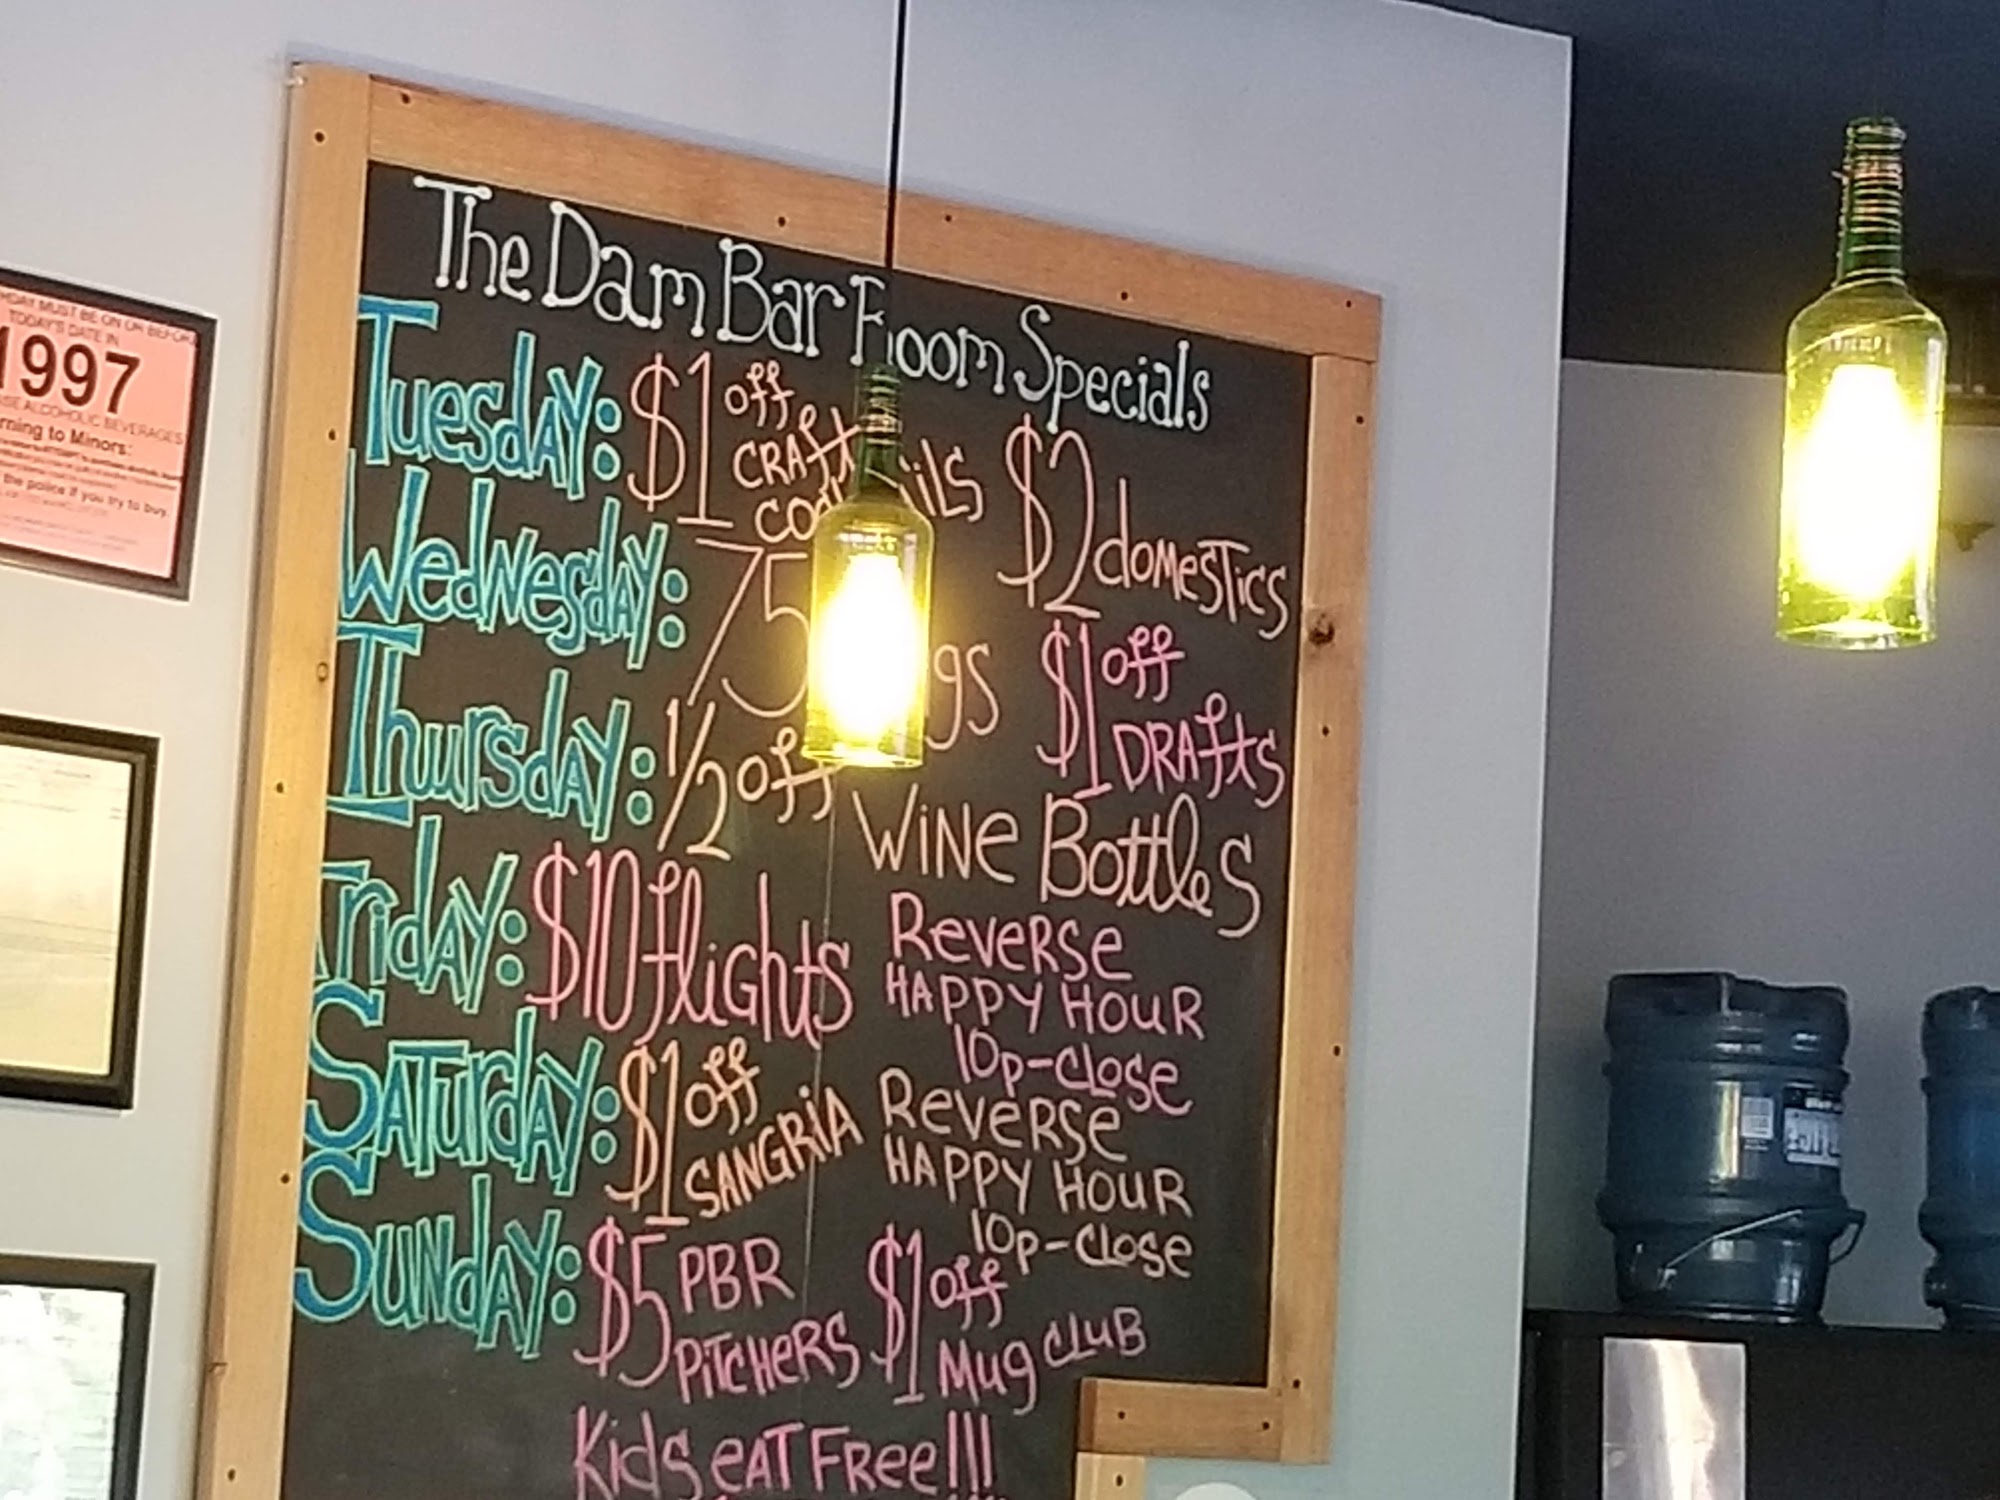 The Dam Bar Room Specials
Tuesday: $1 off craft $2 domestics
Wednesday: 75 $1 off Drafts
Thursday: 1/2 off Wine Bottles
Friday: $10 flights Reverse Happy Hour 10p-close
Saturday: $1 off Sangria Reverse Happy Hour 10p-close
Sunday: $5 PBR Pitchers $1 off Mug Club
Kids eat Free!!!
MUST BE ON OR
TODAY'S DATE IN
1997
ALCOHOLIC BEVERAGES
to Minors:
the police if you try to buy.